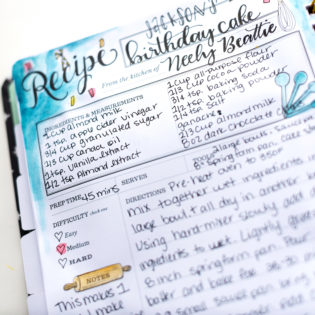 JACKSON'S
Recipe birthday cake
From the kitchen of Neely Beattie
INGREDIENTS & MEASUREMENTS
1 cup almond milk
1 tsp. apple cider vinegar
3/4 cup granulated sugar
1/3 cup canola oil
1 tsp. Vanilla Extract
1/2 tsp Almond Extract
1 cup all-purpose flour
1/3 cup cocoa powder
3/4 tsp. baking soda
1/2 tsp. baking powder
1/4 tsp salt
ganache:
2/3 cup almond milk
8 oz dark chocolate
PREP TIME 45 mins SERVES
TOOLS large bowl, 
8" spring form pan, cake
DIFFICULTY check one
Easy
Medium
HARD
DIRECTIONS Pre-heat oven to 350°
mix together wet ingredients
large bowl + all dry in another
Using hand mixer slowly add
ingredients to wet. Lightly
8 inch springform pan. Pour
batter and bake for
small sauce pan
NOTES
This makes 1
I make